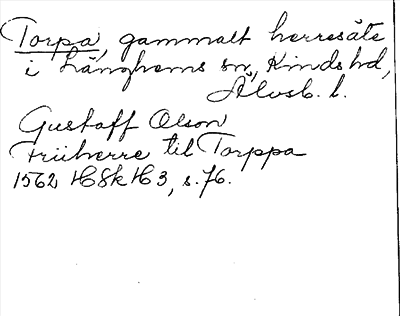 Torpa, gammalt herresäte
i Länghems sn, Kinds hd,
Älvsb. l.
Gustaff Olson
Friiherre til Torppa
1562 HSkH3, s. 76.